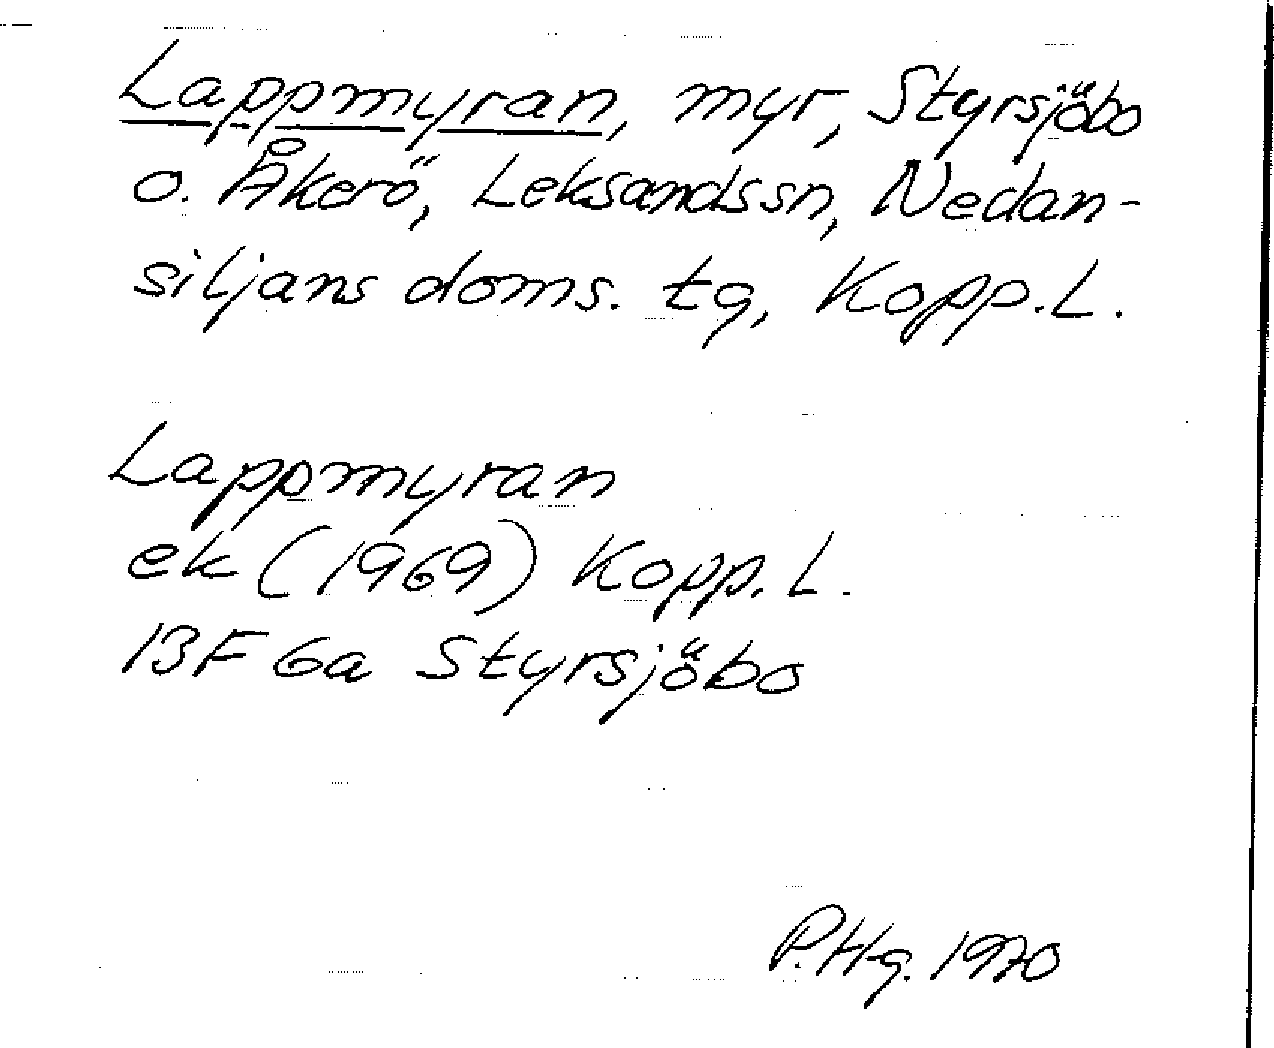 Lappmyran, myr, Styrsjöbo
o. Åkerö, Leksandssn, Nedan-
siljans doms. tg, Kopp.L.
Lappmyran
ek (1969) Kopp. L.
13F 6a Styrsjöbo
P.Hg. 1970